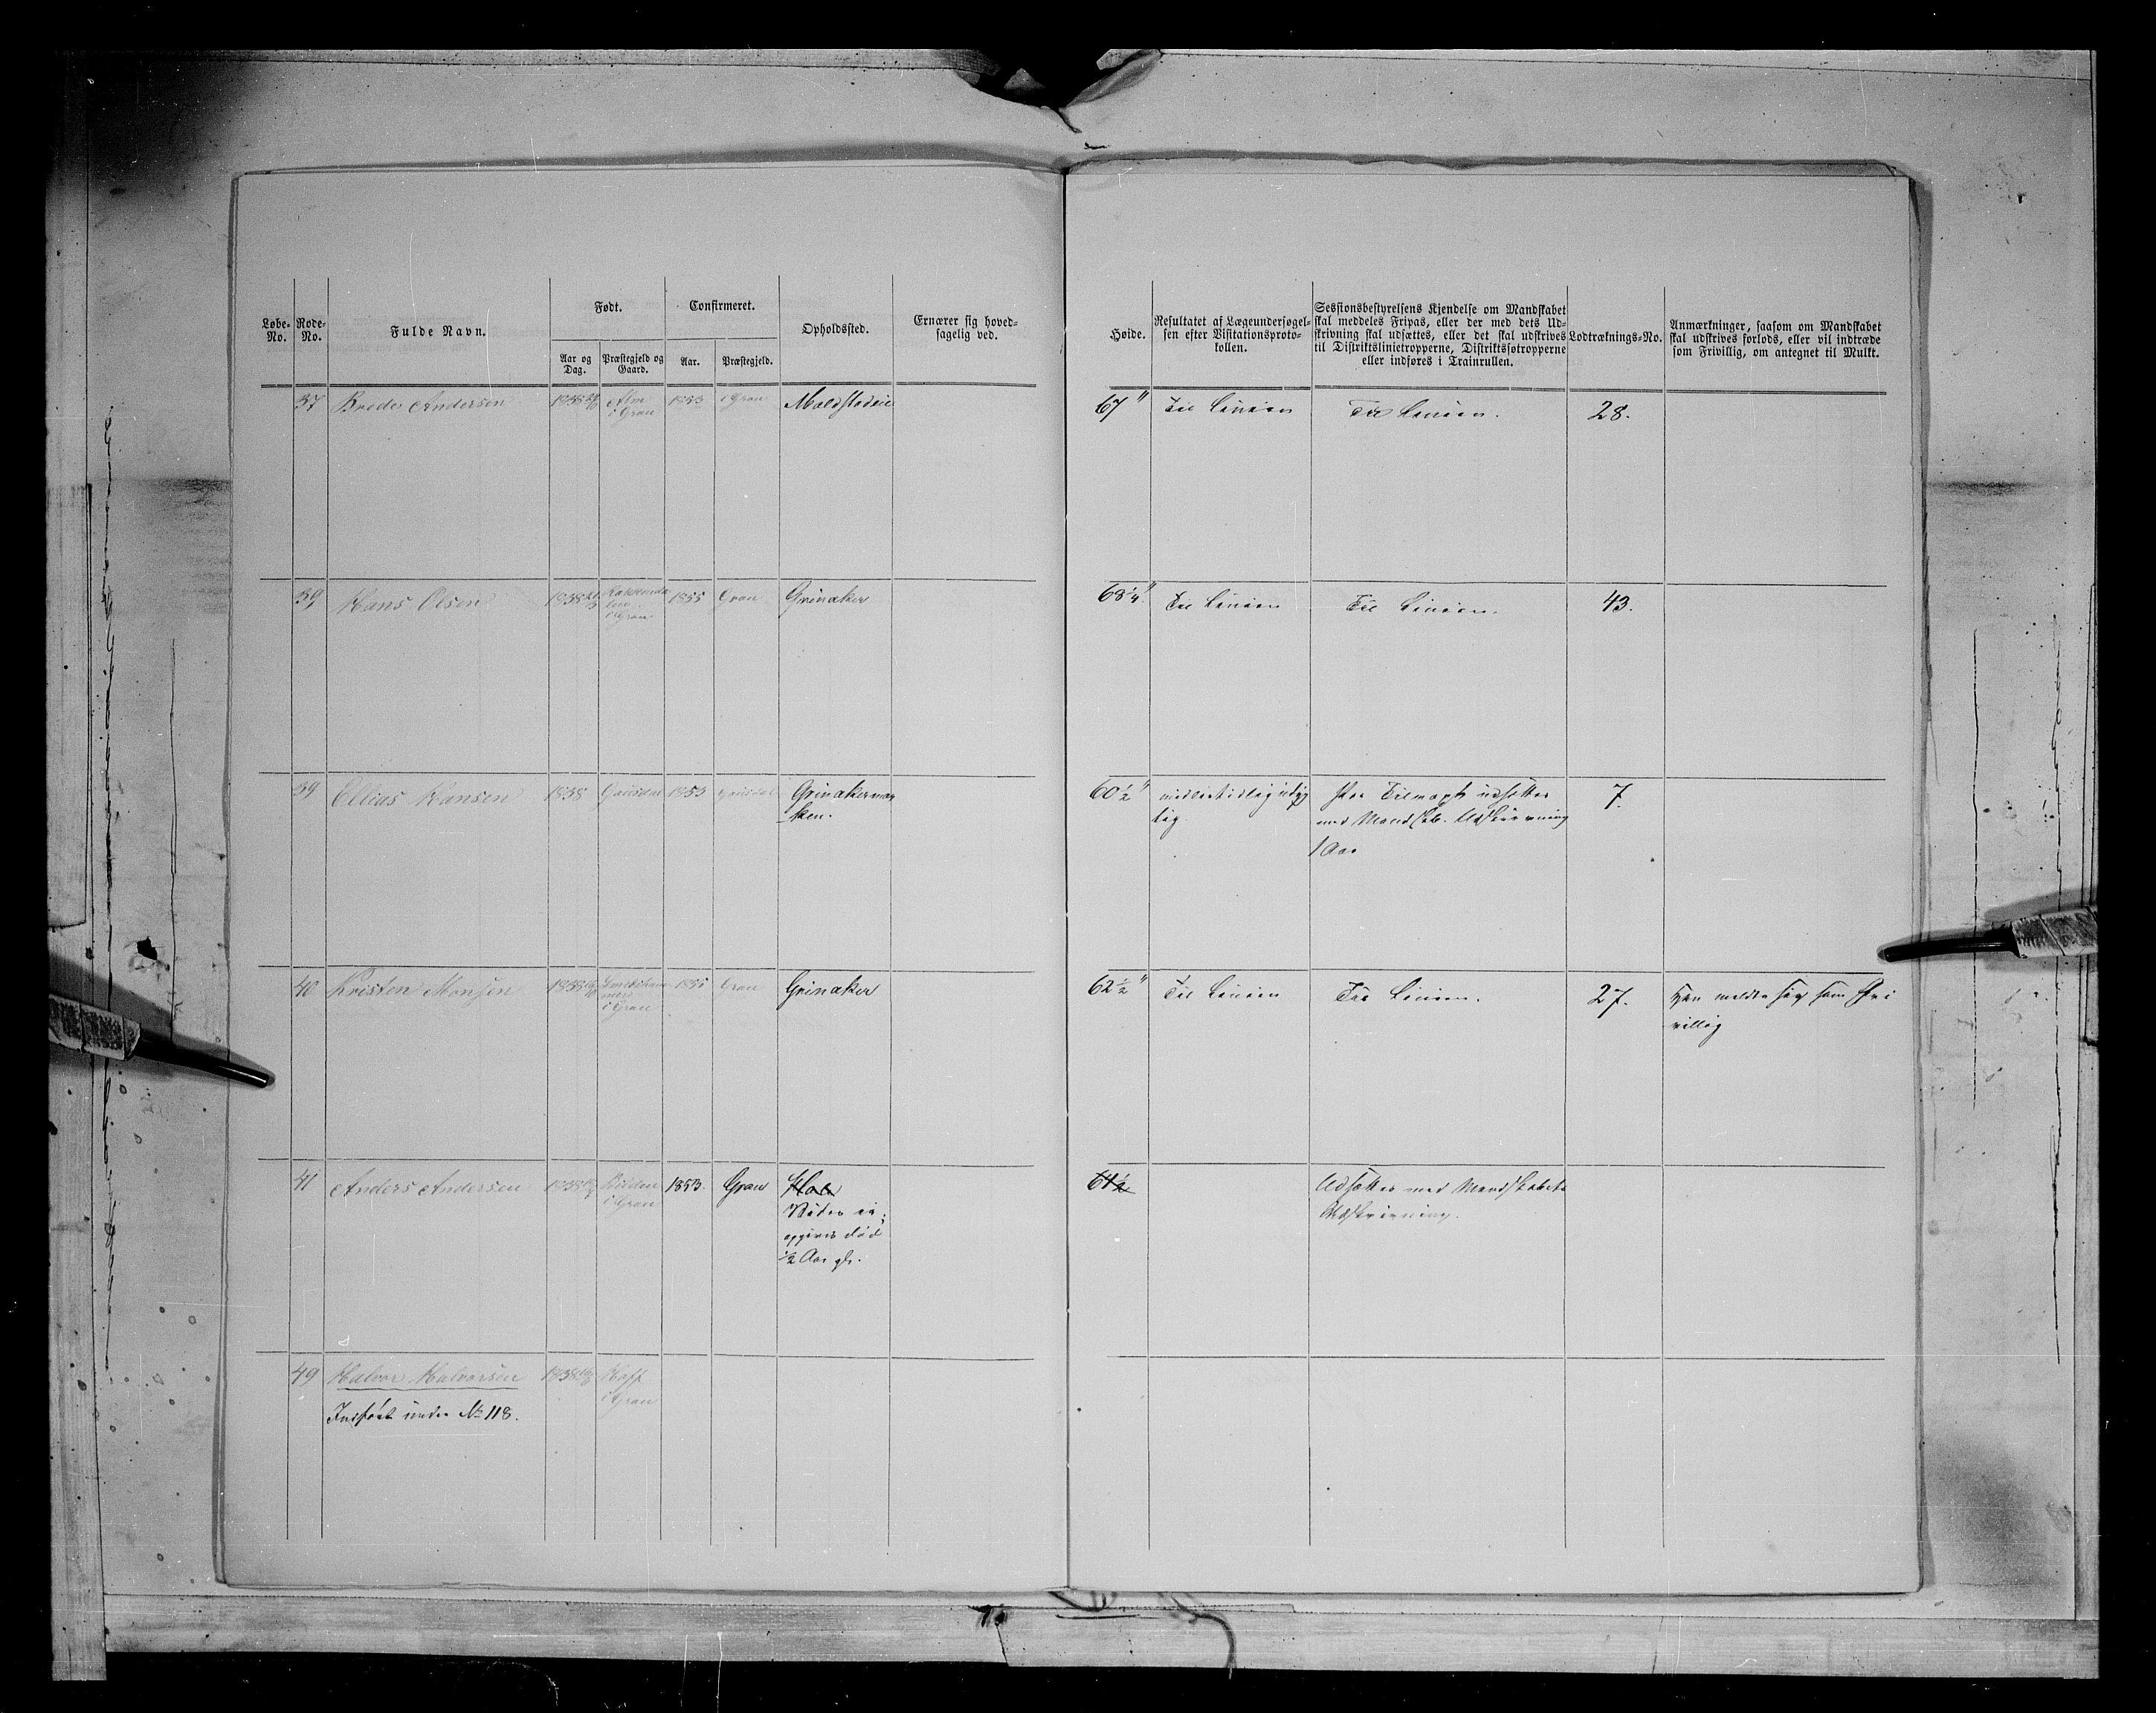 Løbe-No.
Rode-No.
Fulde Navn.
Født.
Aar og Dag.
Præstegjeld og Gaard.
Confirmeret.
Aar.
Præstegjeld.
Opholdssted.
Ernærer sig hoved-
sagelig ved.
Høide.
Resultatet af Lægeundersøgel-
sen efter Visitationsproto-
kollen.
Sessionsbestyrelsens Kjendelse om Mandskabet
skal meddeles Fripas, eller der med dets Ud-
skrivning skal udsættes, eller det skal udskrives
til Distriktslinietropperne, Distriktsføtropperne
eller indføres i Trainrullen.
Lodtræknings-No.
Anmærkninger, saasom om Mandskabet
skal udskrives forlods, eller vil indtræde
som Frivillig, om antegnet til Mulkt.
37 Brede Andersen 1838 Alm 1853 i Gran
i Gran
67" Til Linien Til Linien. 28.
39 Hans Olsen 1838 1855 Gran Grinaker
i Gran
68 1/4" Til Linien Til Linien. 43.
39 Elias Hansen 1838 1853
60 1/2" 7.
1 Aar
40 Kristen Monsen 1838 Gran Grinaker
i Gran
62 1/2" Til Linien Til Linien. 27. Han meldte sig som Fri
villig
41 Anders Andersen 1838 1853. Gran
i Gran
opgives død
1/2 Aar
Udsættes med Mandskabets
Udskrivning.
49 Halvor Halvorsen 1838 Hoff
i Gran
Indført under No 118.